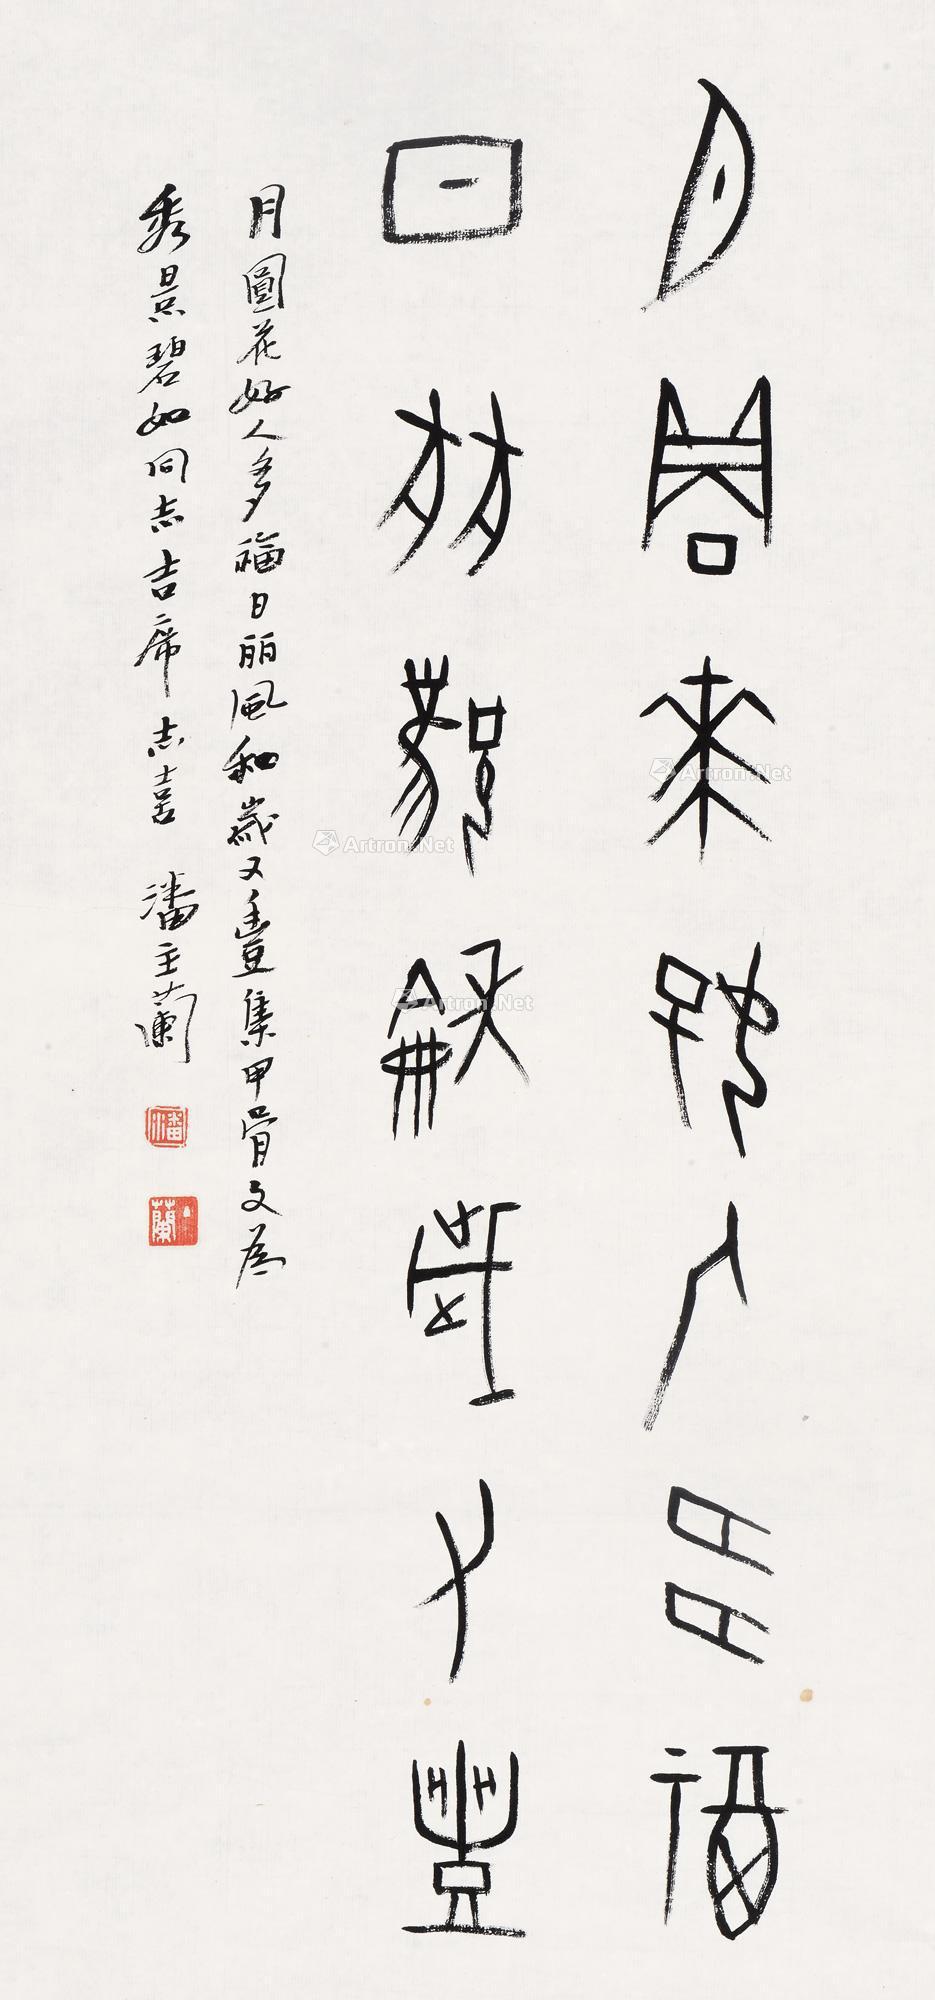 月圓花好人多福
日丽風和歲又豐
月圓花好人多福日丽風和歲又豐集甲骨文為
秀景碧如同志吉席志喜 潘主蘭
潘
主蘭
Artron.Net
Artron.Net
Artron.Net